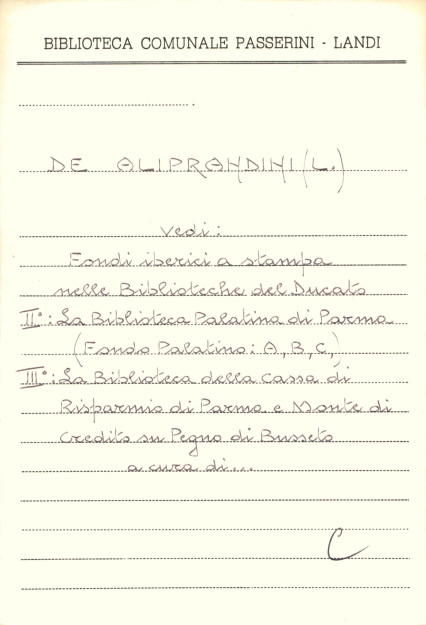 BIBLIOTECA COMUNALE PASSERINI - LANDI
DE ALIPRANDINI (L.)
Vedi:
Fondi iberici a stampa
nelle Biblioteche del Ducato
II°: La Biblioteca Palatina di Parma
(Fondo Palatino: A, B, C,)
III°: La Biblioteca della Cassa di
Risparmio di Parma e Monte di
Credito su Pegno di Busseto
a cura di...
C